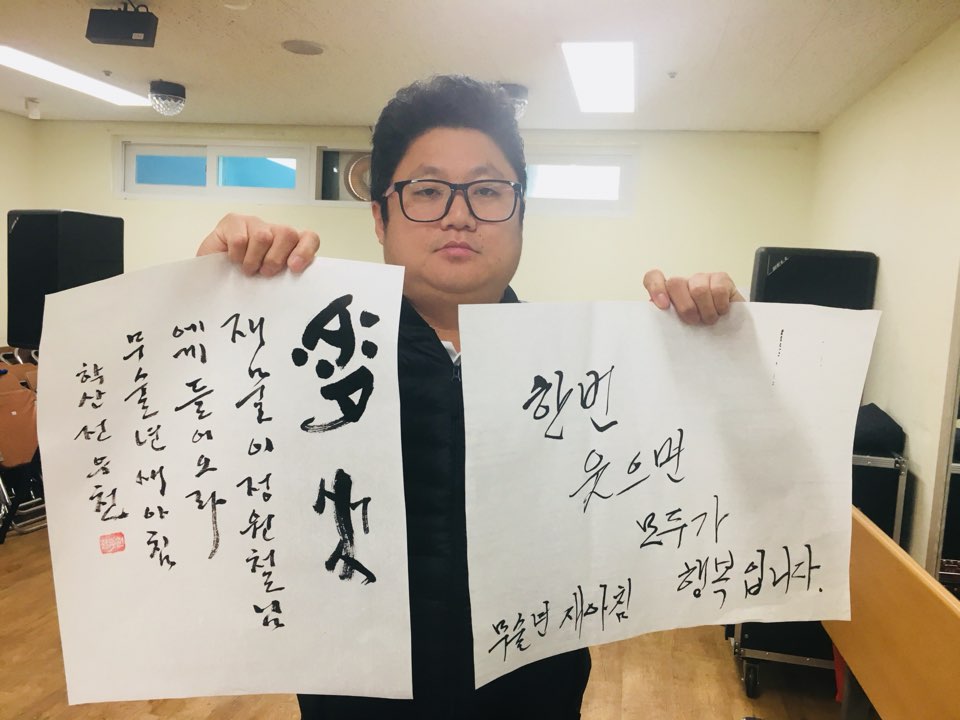 재물이 정원철님
에게 들어오라
무술년 새아침
학산
한번
웃으면
모두가
행복입니다.
무술년 새아침